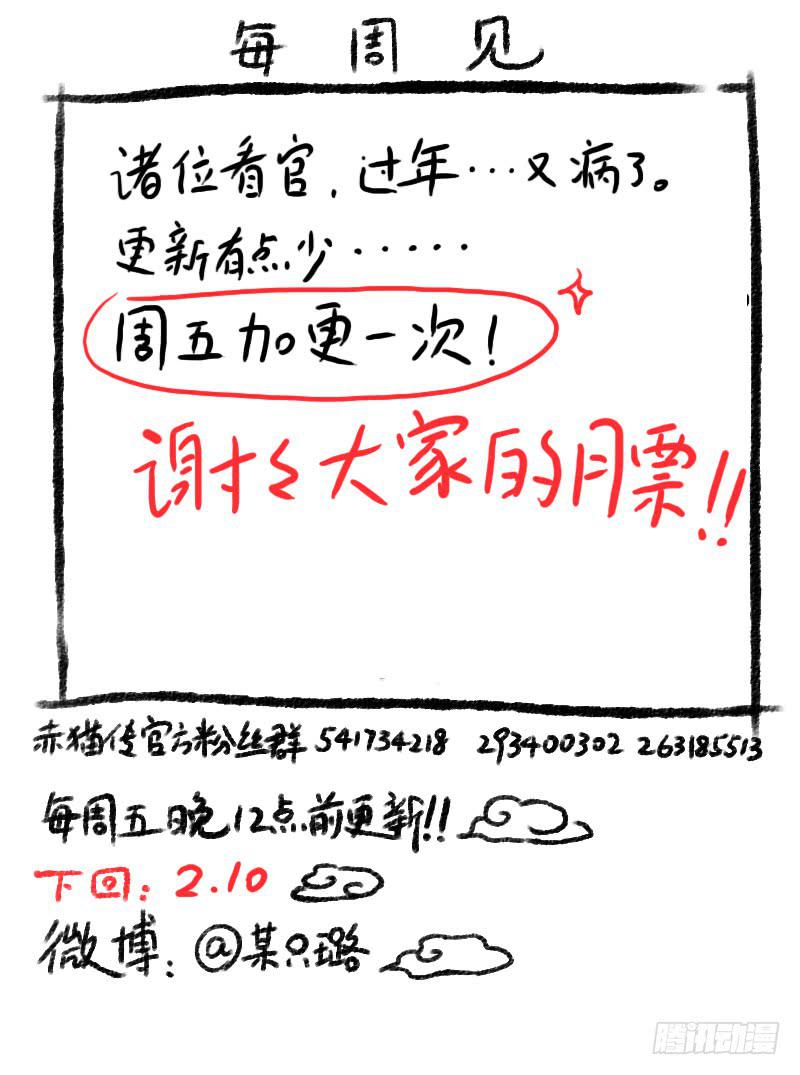 每周见
诸位看官，过年…又病了。
更新有点少……
周五加更一次！
谢谢大家的月票！！
赤猫传官方粉丝群 541734218 293400302 263185513
每周五晚12点前更新！！
下回：2.10
微博：@某只璐
腾讯动漫